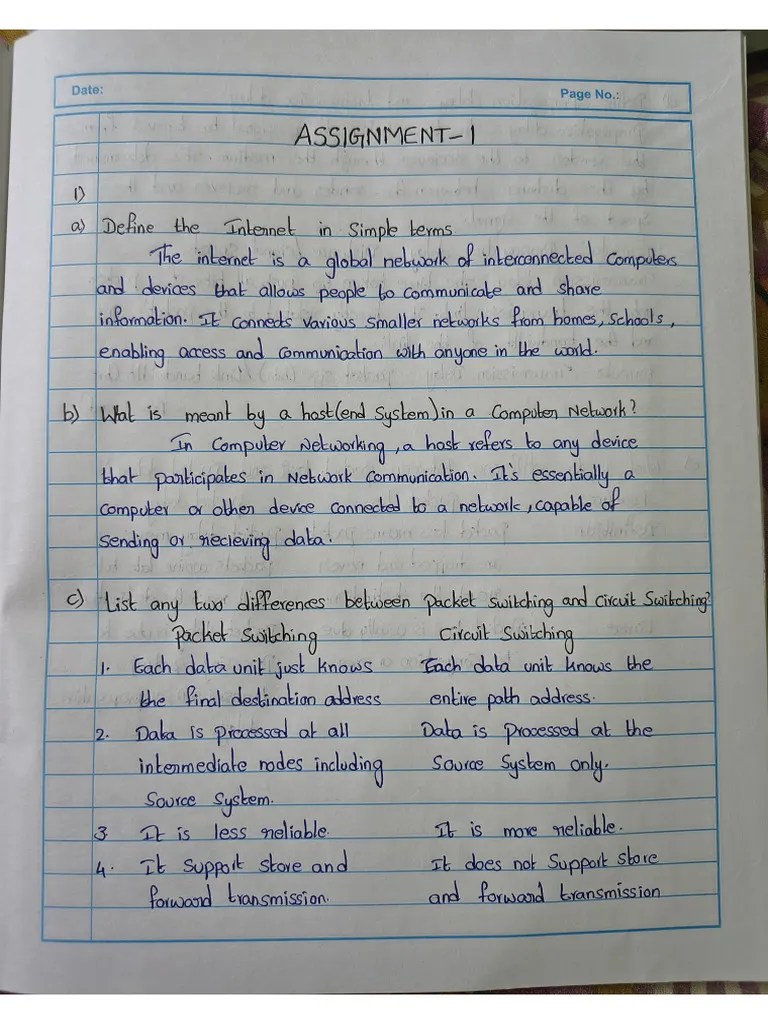 Date:
Page No.:
ASSIGNMENT-1
1)
a) Define the Internet in Simple terms.
The internet is a global network of interconnected computers
and devices that allows people to communicate and share
information. It connects various smaller networks from homes, schools,
enabling access and communication with anyone in the world.
b) Wat is meant by a host(end System) in a Computer Network?
In Computer Networking, a host refers to any device
that participates in Network communication. It's essentially a
computer or other device connected to a network, capable of
sending or recieving data.
c) List any two differences between Packet Switching and Circuit Switching?
Packet Switching Circuit Switching
1. Each data unit just knows Each data unit knows the
the final destination address entire path address.
2. Data is processed at all Data is processed at the
intermediate nodes including Source System only.
Source System.
3 It is less reliable. It is more reliable.
4. It Support Store and It does not Support store
forward transmission. and forward transmission